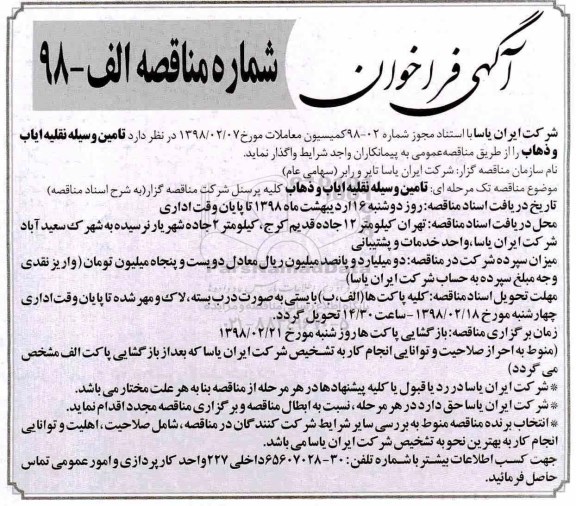 آگهی فراخوان
شماره مناقصه الف-۹۸
شرکت ایران یاسا با استناد مجوز شماره ۰۲-۹۸ کمیسیون معاملات مورخ ۱۳۹۸/۰۲/۰۷ در نظر دارد تامین وسیله نقلیه ایاب
و ذهاب را از طریق مناقصه عمومی به پیمانکاران واجد شرایط واگذار نماید.
نام سازمان مناقصه گزار: شرکت ایران یاسا تایر و رابر (سهامی عام)
موضوع مناقصه تک مرحله ای: تامین وسیله نقلیه ایاب و ذهاب کلیه پرسنل شرکت مناقصه گزار (به شرح اسناد مناقصه)
تاریخ دریافت اسناد مناقصه: روز دوشنبه ۱۶ اردیبهشت ماه ۱۳۹۸ تا پایان وقت اداری
محل دریافت اسناد مناقصه: تهران کیلومتر ۱۲ جاده قدیم کرج، کیلومتر ۲ جاده شهریار نرسیده به شهرک سعید آباد
شرکت ایران یاسا، واحد خدمات و پشتیبانی
میزان سپرده شرکت در مناقصه: دو میلیارد و پانصد میلیون ریال معادل دویست و پنجاه میلیون تومان (واریز نقدی
وجه مبلغ سپرده به حساب شرکت ایران یاسا)
مهلت تحویل اسناد مناقصه: کلیه پاکت ها (الف، ب) بایستی به صورت درب بسته، لاک و مهر شده تا پایان وقت اداری
چهارشنبه مورخ ۱۳۹۸/۰۲/۱۸ - ساعت ۱۴/۳۰ تحویل گردد.
زمان برگزاری مناقصه: بازگشایی پاکت ها روز شنبه مورخ ۱۳۹۸/۰۲/۲۱
(منوط به احراز صلاحیت و توانایی انجام کار به تشخیص شرکت ایران یاسا که بعد از بازگشایی پاکت الف مشخص
می گردد)
* شرکت ایران یاسا در رد یا قبول یا کلیه پیشنهادها در هر مرحله از مناقصه بنا به هر علت مختار می باشد.
* شرکت ایران یاسا حق دارد در هر مرحله، نسبت به ابطال مناقصه و برگزاری مناقصه مجدد اقدام نماید.
* انتخاب برنده مناقصه منوط به بررسی سایر شرایط شرکت کنندگان در مناقصه، شامل صلاحیت، اهلیت و توانایی
انجام کار به بهترین نحو به تشخیص شرکت ایران یاسا می باشد.
جهت کسب اطلاعات بیشتر با شماره تلفن: ۳۰-۶۵۶۰۷۰۲۸ داخلی ۲۲۷ واحد کارپردازی و امور عمومی تماس
حاصل فرمائید.